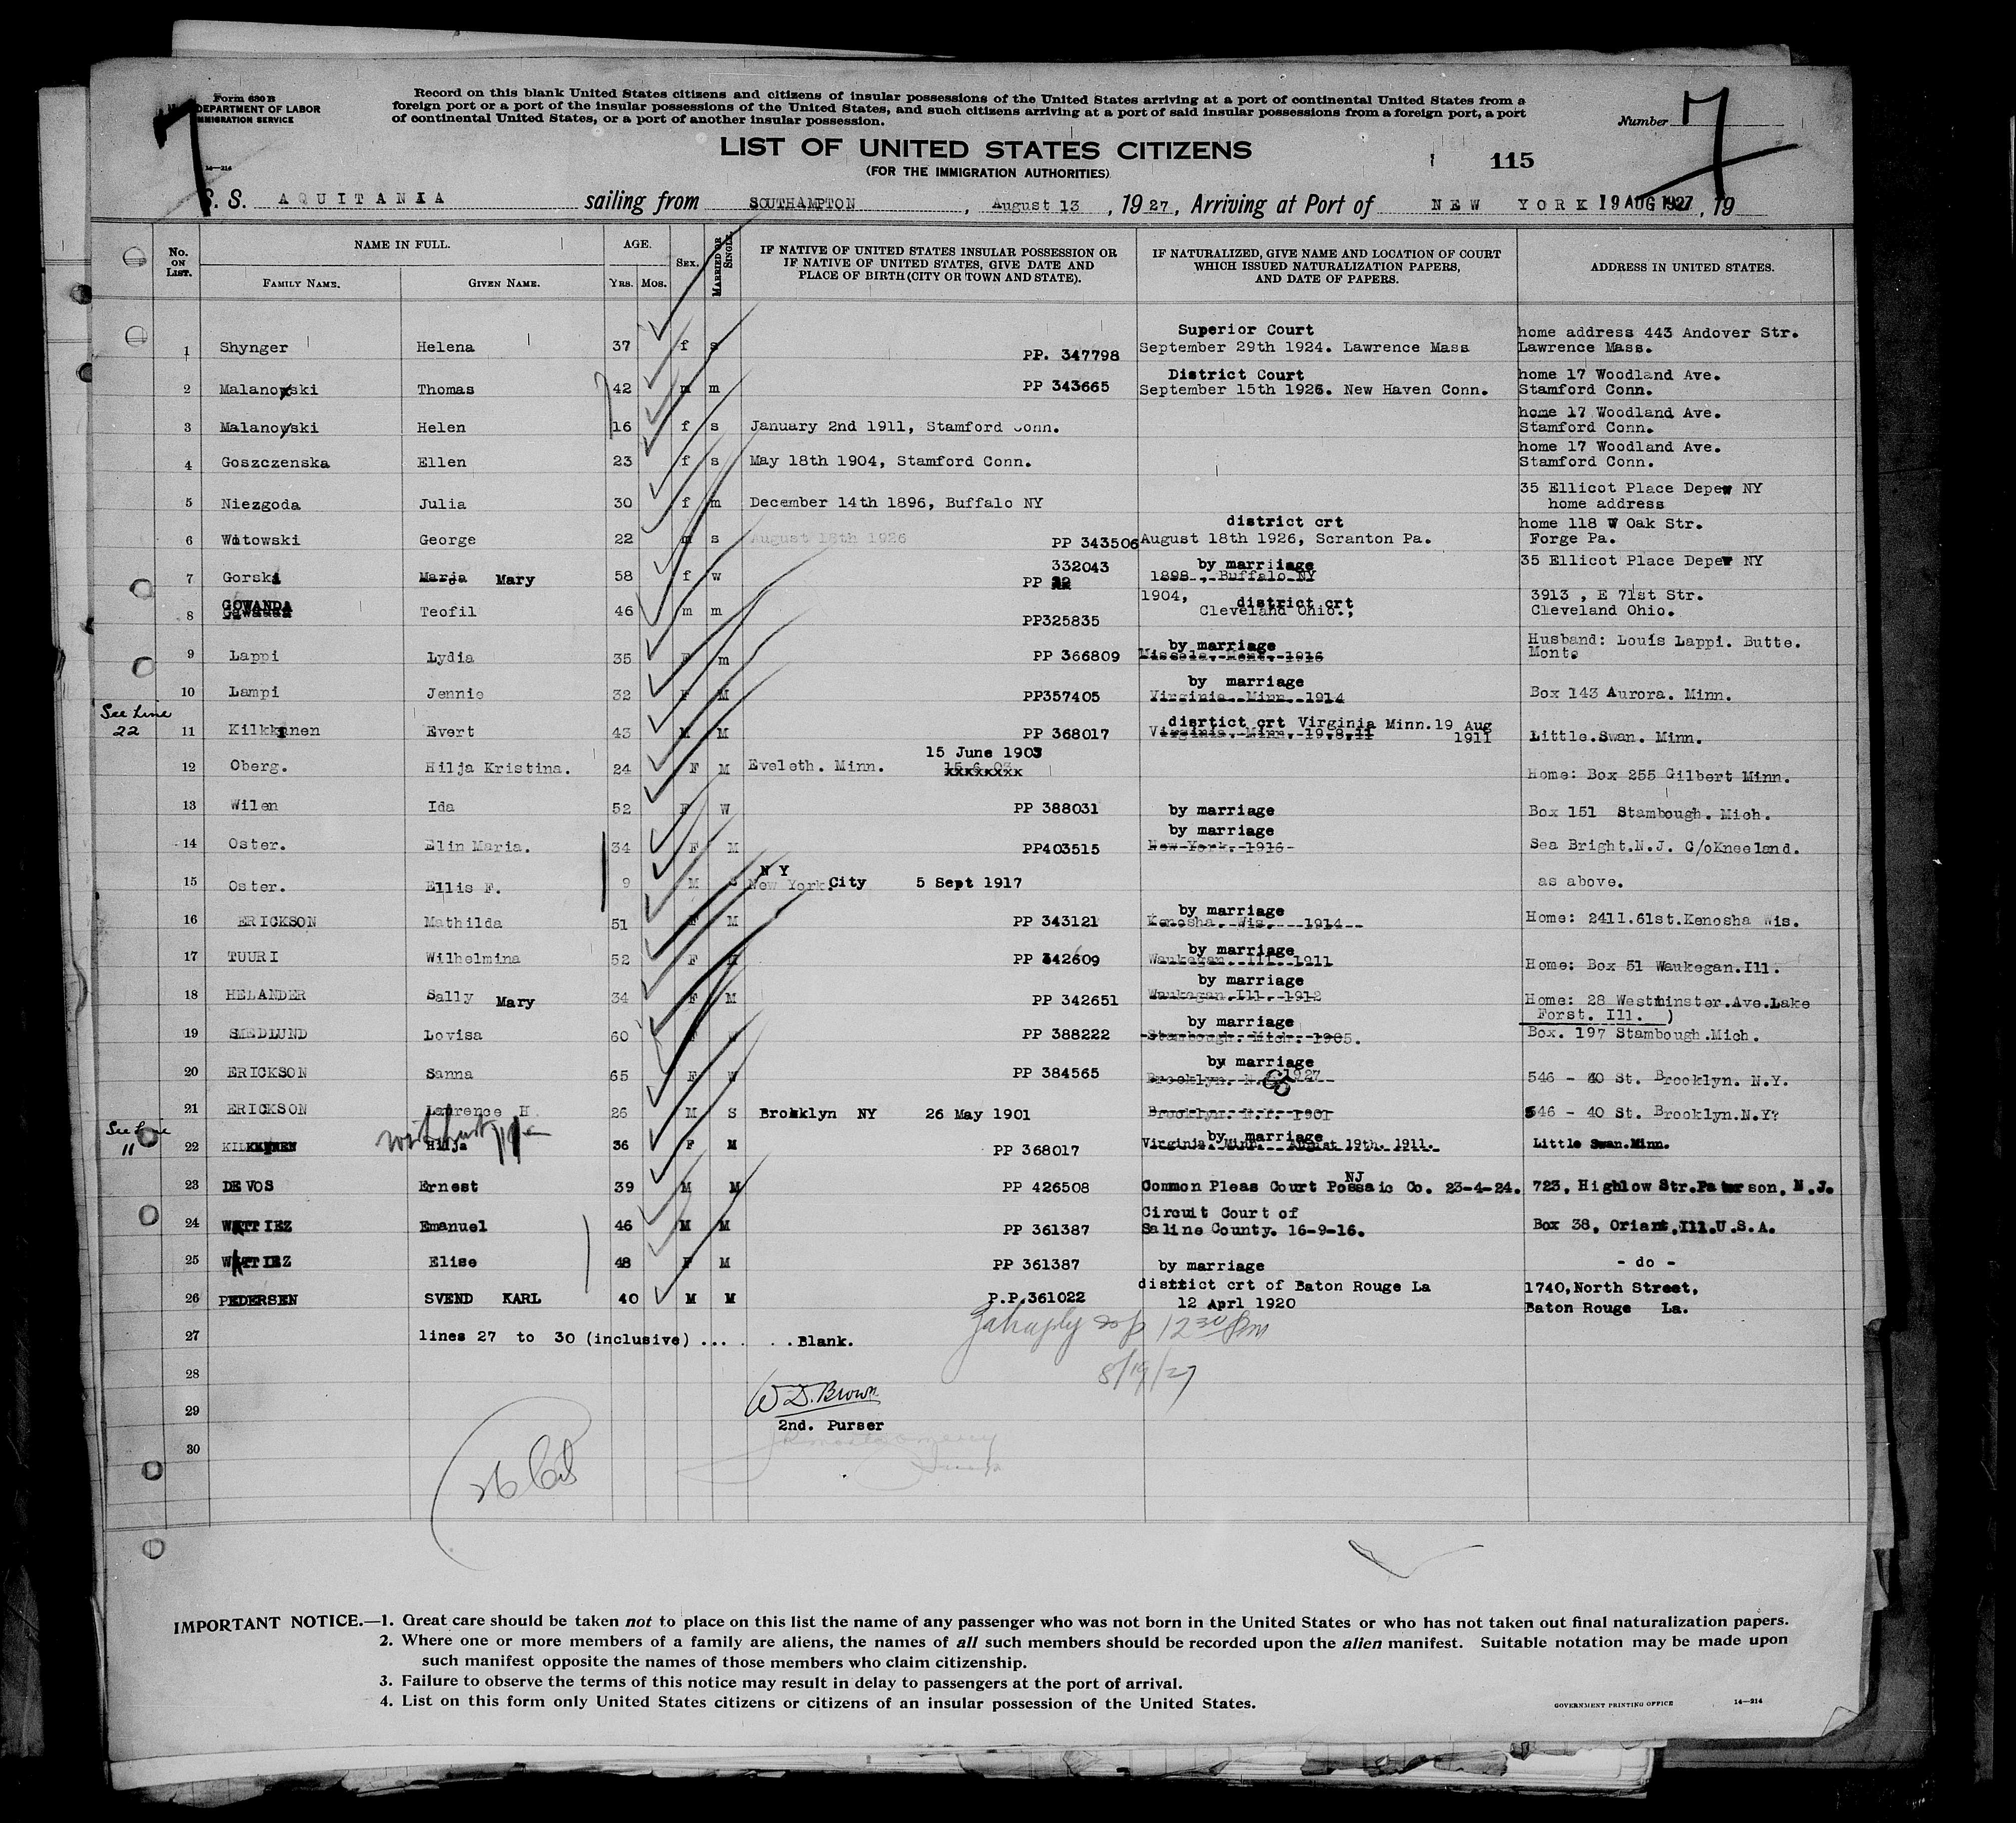 Form 630 B
DEPARTMENT OF LABOR
IMMIGRATION SERVICE
14—214
Record on this blank United States citizens and citizens of insular possessions of the United States arriving at a port of continental United States from a
foreign port or a port of the insular possessions of the United States, and such citizens arriving at a port of said insular possessions from a foreign port, a port
of continental United States, or a port of another insular possession.
Number 7
7
LIST OF UNITED STATES CITIZENS
(FOR THE IMMIGRATION AUTHORITIES)
115
S. S. AQUITANIA sailing from SOUTHAMPTON, August 13, 1927, Arriving at Port of NEW YORK 19 AUG 1927, 19
No. ON LIST. NAME IN FULL. FAMILY NAME. GIVEN NAME. AGE. YRS. MOS. SEX. MARRIED OR SINGLE. IF NATIVE OF UNITED STATES INSULAR POSSESSION OR IF NATIVE OF UNITED STATES, GIVE DATE AND PLACE OF BIRTH (CITY OR TOWN AND STATE). IF NATURALIZED, GIVE NAME AND LOCATION OF COURT WHICH ISSUED NATURALIZATION PAPERS, AND DATE OF PAPERS. ADDRESS IN UNITED STATES.
1 Shynger Helena 37 f s PP. 347798 Superior Court September 29th 1924. Lawrence Mass home address 443 Andover Str. Lawrence Mass.
2 Malanowski Thomas 42 m m PP 343665 District Court September 15th 1926. New Haven Conn. home 17 Woodland Ave. Stamford Conn.
3 Malanowski Helen 16 f s January 2nd 1911, Stamford Conn. home 17 Woodland Ave. Stamford Conn.
4 Goszczenska Ellen 23 f s May 18th 1904, Stamford Conn. home 17 Woodland Ave. Stamford Conn.
5 Niezgoda Julia 30 f m December 14th 1896, Buffalo NY 35 Ellicot Place Depew NY home address
6 Witowski George 22 m s August 18th 1926 PP 343506 district crt August 18th 1926, Scranton Pa. home 118 W Oak Str. Forge Pa.
7 Gorski Maria Mary 58 f w 332043 PP by marriiage 1898 , Buffalo NY 35 Ellicot Place Depew NY
8 GOWANDA Teofil 46 m m PP325835 1904, district crt Cleveland Ohio., 3913 , E 71st Str. Cleveland Ohio.
9 Lappi Lydia 35 F m PP 366809 by marriage Missola. Mont. 1916 Husband: Louis Lappi. Butte. Mont.
10 Lampi Jennie 32 F M PP357405 by marriage Virginia. Minn. 1914 Box 143 Aurora. Minn.
See Line 22
11 Kilkkinen Evert 43 M M PP 368017 disrtict crt Virginia Minn.19 Aug 1911 Virginia. Minn. 19.8.11 Little.Swan. Minn.
12 Oberg. Hilja Kristina. 24 F M Eveleth. Minn. 15 June 1903 15.6.03 Home: Box 255 Gilbert Minn.
13 Wilen Ida 52 F W PP 388031 by marriage Box 151 Stambough. Mich.
14 Oster. Elin Maria. 34 F M PP403515 by marriage New York. 1916 Sea Bright.N.J. C/oKneeland.
15 Oster. Ellis F. 9 M S N Y New York. City 5 Sept 1917 as above.
16 ERICKSON Mathilda 51 F M PP 343121 by marriage Kenosha. Wis. 1914 Home: 2411.61st.Kenosha Wis.
17 TUURI Wilhelmina 52 F M PP 342609 by marriage Waukegan. Ill. 1911 Home: Box 51 Waukegan.Ill.
18 HELANDER Sally Mary 34 F M PP 342651 by marriage Waukegan.Ill. 1912 Home: 28 Westminster.Ave.Lake Forst. Ill. )
19 SMEDLUND Lovisa 60 F W PP 388222 by marriage Stambough. Mich. 1905. Box. 197 Stambough.Mich.
20 ERICKSON Sanna 65 F W PP 384565 by marriage Brooklyn. N. 1927 546 - 40 St. Brooklyn. N.Y.
21 ERICKSON Lawrence H 26 M S Brooklyn NY 26 May 1901 Brooklyn. N.Y. 1901 546 - 40 St. Brooklyn.N.Y?
See Line 11
22 KILKKINEN Hilja 36 F M PP 368017 by marriage Virginia. Minn. August 19th. 1911. Little Swan.Minn.
23 DE VOS Ernest 39 M M PP 426508 Common Pleas Court Possaic Co. NJ 23-4-24. 723, Highlow Str.Paterson, N.J.
24 WATTIEZ Emanuel 46 M M PP 361387 Circuit Court of Saline County. 16-9-16. Box 38, Orient,Ill.U.S.A.
25 WATTIEZ Elise 48 F M PP 361387 by marriage - do -
26 PEDERSEN SVEND KARL 40 M M P.P.361022 district crt of Baton Rouge La 12 Aprl 1920 1740,North Street, Baton Rouge La.
27 lines 27 to 30 (inclusive) ... . . .Blank.
12 30 pm
28
8/19/27
W D. Brown
29
2nd. Purser
30
IMPORTANT NOTICE.—1. Great care should be taken not to place on this list the name of any passenger who was not born in the United States or who has not taken out final naturalization papers.
2. Where one or more members of a family are aliens, the names of all such members should be recorded upon the alien manifest. Suitable notation may be made upon
such manifest opposite the names of those members who claim citizenship.
3. Failure to observe the terms of this notice may result in delay to passengers at the port of arrival.
4. List on this form only United States citizens or citizens of an insular possession of the United States.
GOVERNMENT PRINTING OFFICE 14—214